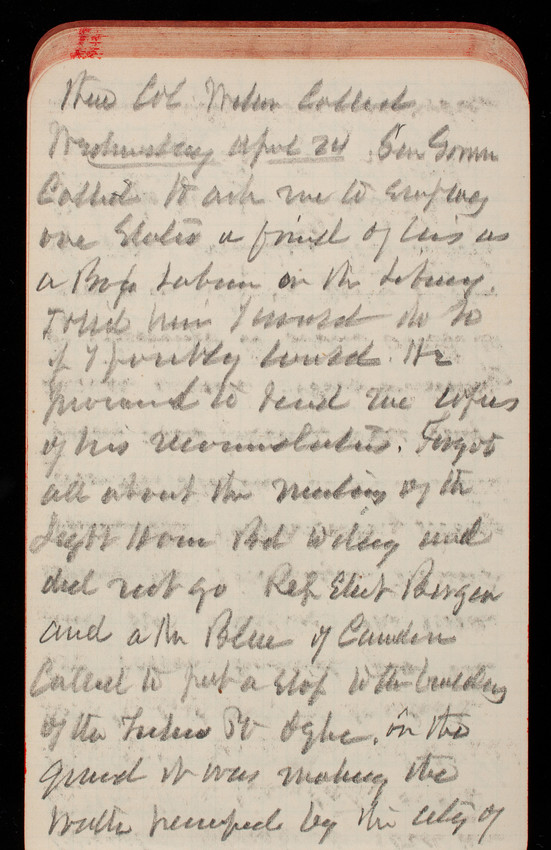 Col Wilson Called
Wednesday April 24 Sen Gorman
Called to ask me to employ
one States a friend of his as
a Laborer on the Library.
I told him I would do so
if I possibly could. He
promised to send me copies
of his recommendations. Forgot
all about the meeting of the
Light House Bd to day and
did not go Rep Elect Bergen
and a Mr Blue of Camden
Called to put a stop to the building
of the Fishers Pt Lights, on the
ground it was making the
water by the city of